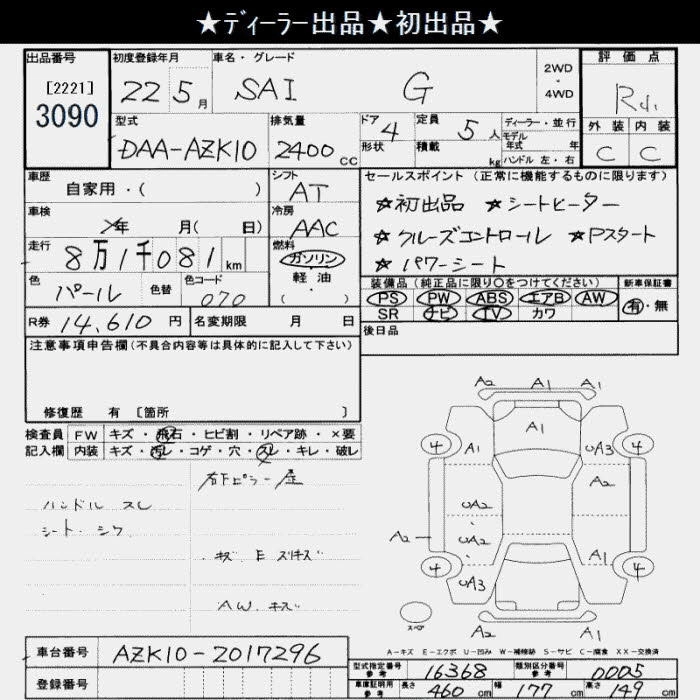 ★ディーラー出品★初出品★
出品番号
[2221]
3090
初度登録年月
22 5月
車名・グレード
SAI G
2WD
・
4WD
評価点
外装 内装
C C
型式
DAA-AZK10
排気量
2400 CC
ドア 4
形状
定員 5人
積載 kg
ディーラー・並行
モデル
年式 年
ハンドル 左・右
車歴
自家用・( )
シフト
AT
車検
年 月( 日)
冷房
AAC
走行
8万1千081 km
燃料
ガソリン
軽油
( ・ )
色
パール
色替
色コード
070
セールスポイント (正常に機能するものに限ります)
★初出品 ★シートヒーター
★クルーズコントロール ★Pスタート
★パワーシート
装備品 (純正品に限り○をつけてください)
PS PW ABS エアB AW
SR ナビ TV カワ
新車保証書
有・無
R券 14,610 円
名変期限 月 日
後日品
注意事項申告欄 (不具合内容等は具体的に記入して下さい)
修復歴 有 [箇所 ]
検査員
記入欄
FW キズ・飛石・ヒビ割・リペア跡・×要
内装 キズ・汚レ・コゲ・穴・スレ・キレ・破レ
ハンドル スレ
シート シワ
AW キズ
A2 A1 A1
A1
4 A1 UA3 4
UA2 A2
A2 UA2
4 UA3 A1 4
A2 A1 A1
スペア
A-キズ E-エクボ U-凹み W-補修跡 S-サビ C-腐食 XX-交換済
車台番号 AZK10-2017296
登録番号
型式指定番号
参考
16368
類別区分番号
参考
0005
車庫証明用
参考
長さ 460 cm 幅 177 cm 高さ 149 cm